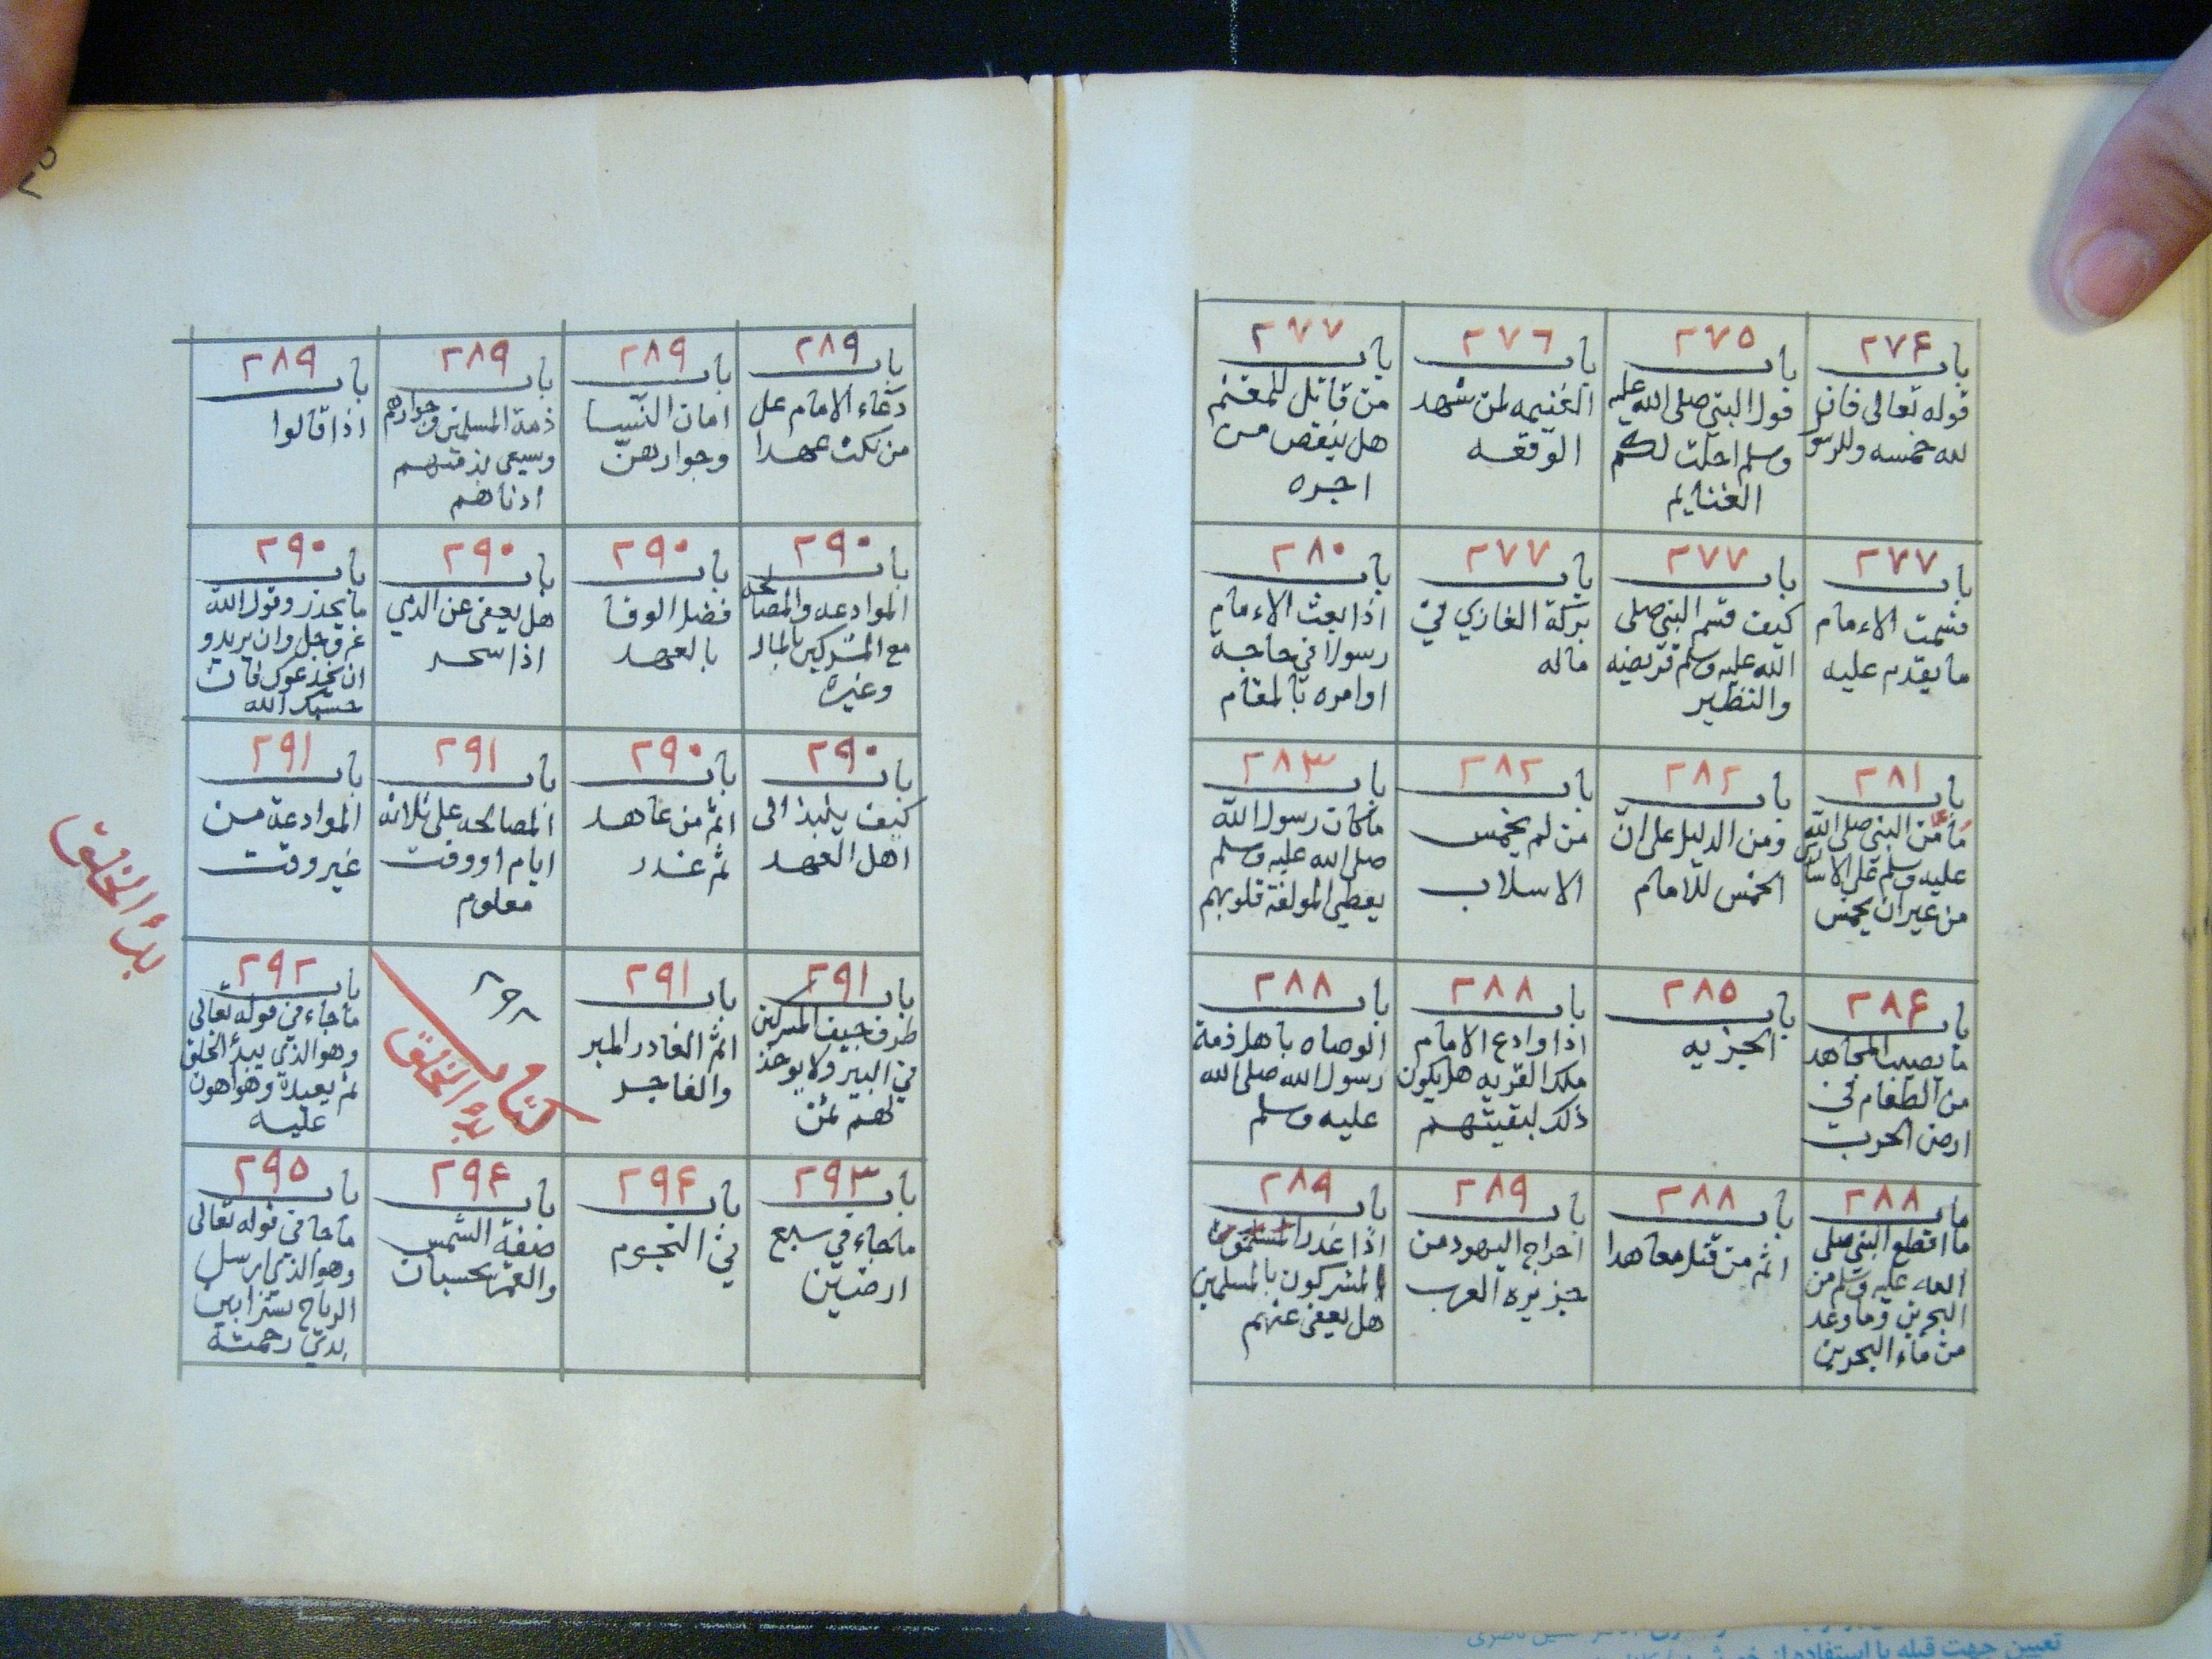 باب ٢٧۴
قوله تعالى فان
لله خمسه وللرسول
باب ٢٧٥
قول النبي صلى الله عليه
وسلم احلت لكم
الغنايم
باب ٢٧٦
الغنيمه لمن شهد
الوقعه
باب ٢٧٧
من قاتل للمغنم
هل ينقص من
اجره
باب ٢٧٧
قسمت الامام
ما يقدم عليه
باب ٢٧٧
كيف قسم النبي صلى
الله عليه وسلم قريضه
والنظير
باب ٢٧٧
بركة الغازي في
ماله
باب ٢٨٠
اذا بعث الامام
رسولا في حاجة
او امره بالمقام
باب ٢٨١
ما من النبي صلى الله
عليه وسلم على الاسارى
من غير ان يخمس
باب ٢٨٢
ومن الدليل على انّ
الخمس للامام
باب ٢٨٢
من لم يخمس
الاسلاب
باب ٢٨٣
ما كان رسول الله
صلى الله عليه وسلم
يعطي المولفة قلوبهم
باب ٢٨۴
ما يصيب المجاهد
من الطعام في
ارض الحرب
باب ٢٨٥
الجزيه
باب ٢٨٨
اذا وادع الامام
ملك القريه هل يكون
ذلك لبقيتهم
باب ٢٨٨
الوصاه باهل ذمة
رسول الله صلى الله
عليه وسلم
باب ٢٨٨
ما اقطع النبي صلى
الله عليه وسلم من
البحرين وما وعد
من مال البحرين
باب ٢٨٨
اثم من قتل معاهدا
باب ٢٨٩
اخراج اليهود من
جزيره العرب
باب ٢٨٩
اذا غدر
المشركون بالمسلمين
هل يعفى عنهم
باب ٢٨٩
دعاء الامام على
من نكث عهدا
باب ٢٨٩
امان النسا
وجوارهنّ
باب ٢٨٩
ذمة المسلمين وجوارهم
وسيعى بذمتهم
ادناهم
باب ٢٨٩
اذا قالوا
باب ٢٩٠
الموادعه والمصالحه
مع المشركين بالمال
وغيره
باب ٢٩٠
فضل الوفا
بالعهد
باب ٢٩٠
هل يعفى عن الذمي
اذا سحر
باب ٢٩٠
ما يحذر وقول الله
عز وجل وان يريدو
ان يخدعوك فان
حسبك الله
باب ٢٩٠
كيف ينبذ الى
اهل العهد
باب ٢٩٠
اثم من عاهد
ثم غدر
باب ٢٩١
المصالحه على ثلاثه
ايام او وقت
معلوم
باب ٢٩١
الموادعة من
غير وقت
باب ٢٩١
طرف جيف المشركين
في البير ولا يوخذ
لهم ثمن
باب ٢٩١
اثم الغادر للبر
والفاجر
كتاب
بدء الخلق
باب ٢٩٢
ما جاء في قوله تعالى
وهو الذي يبدء الخلق
ثم يعيده وهو اهون
عليه
بدء الخلق
باب ٢٩٣
ما جاء في سبع
ارضين
باب ٢٩۴
في النجوم
باب ٢٩۴
صفة الشمس
والقمر بحسبان
باب ٢٩٥
ما جا في قوله تعالى
وهو الذي ارسل
الرياح بشرا بين
يدي رحمته
تعيين جهت قبله با استفاده از